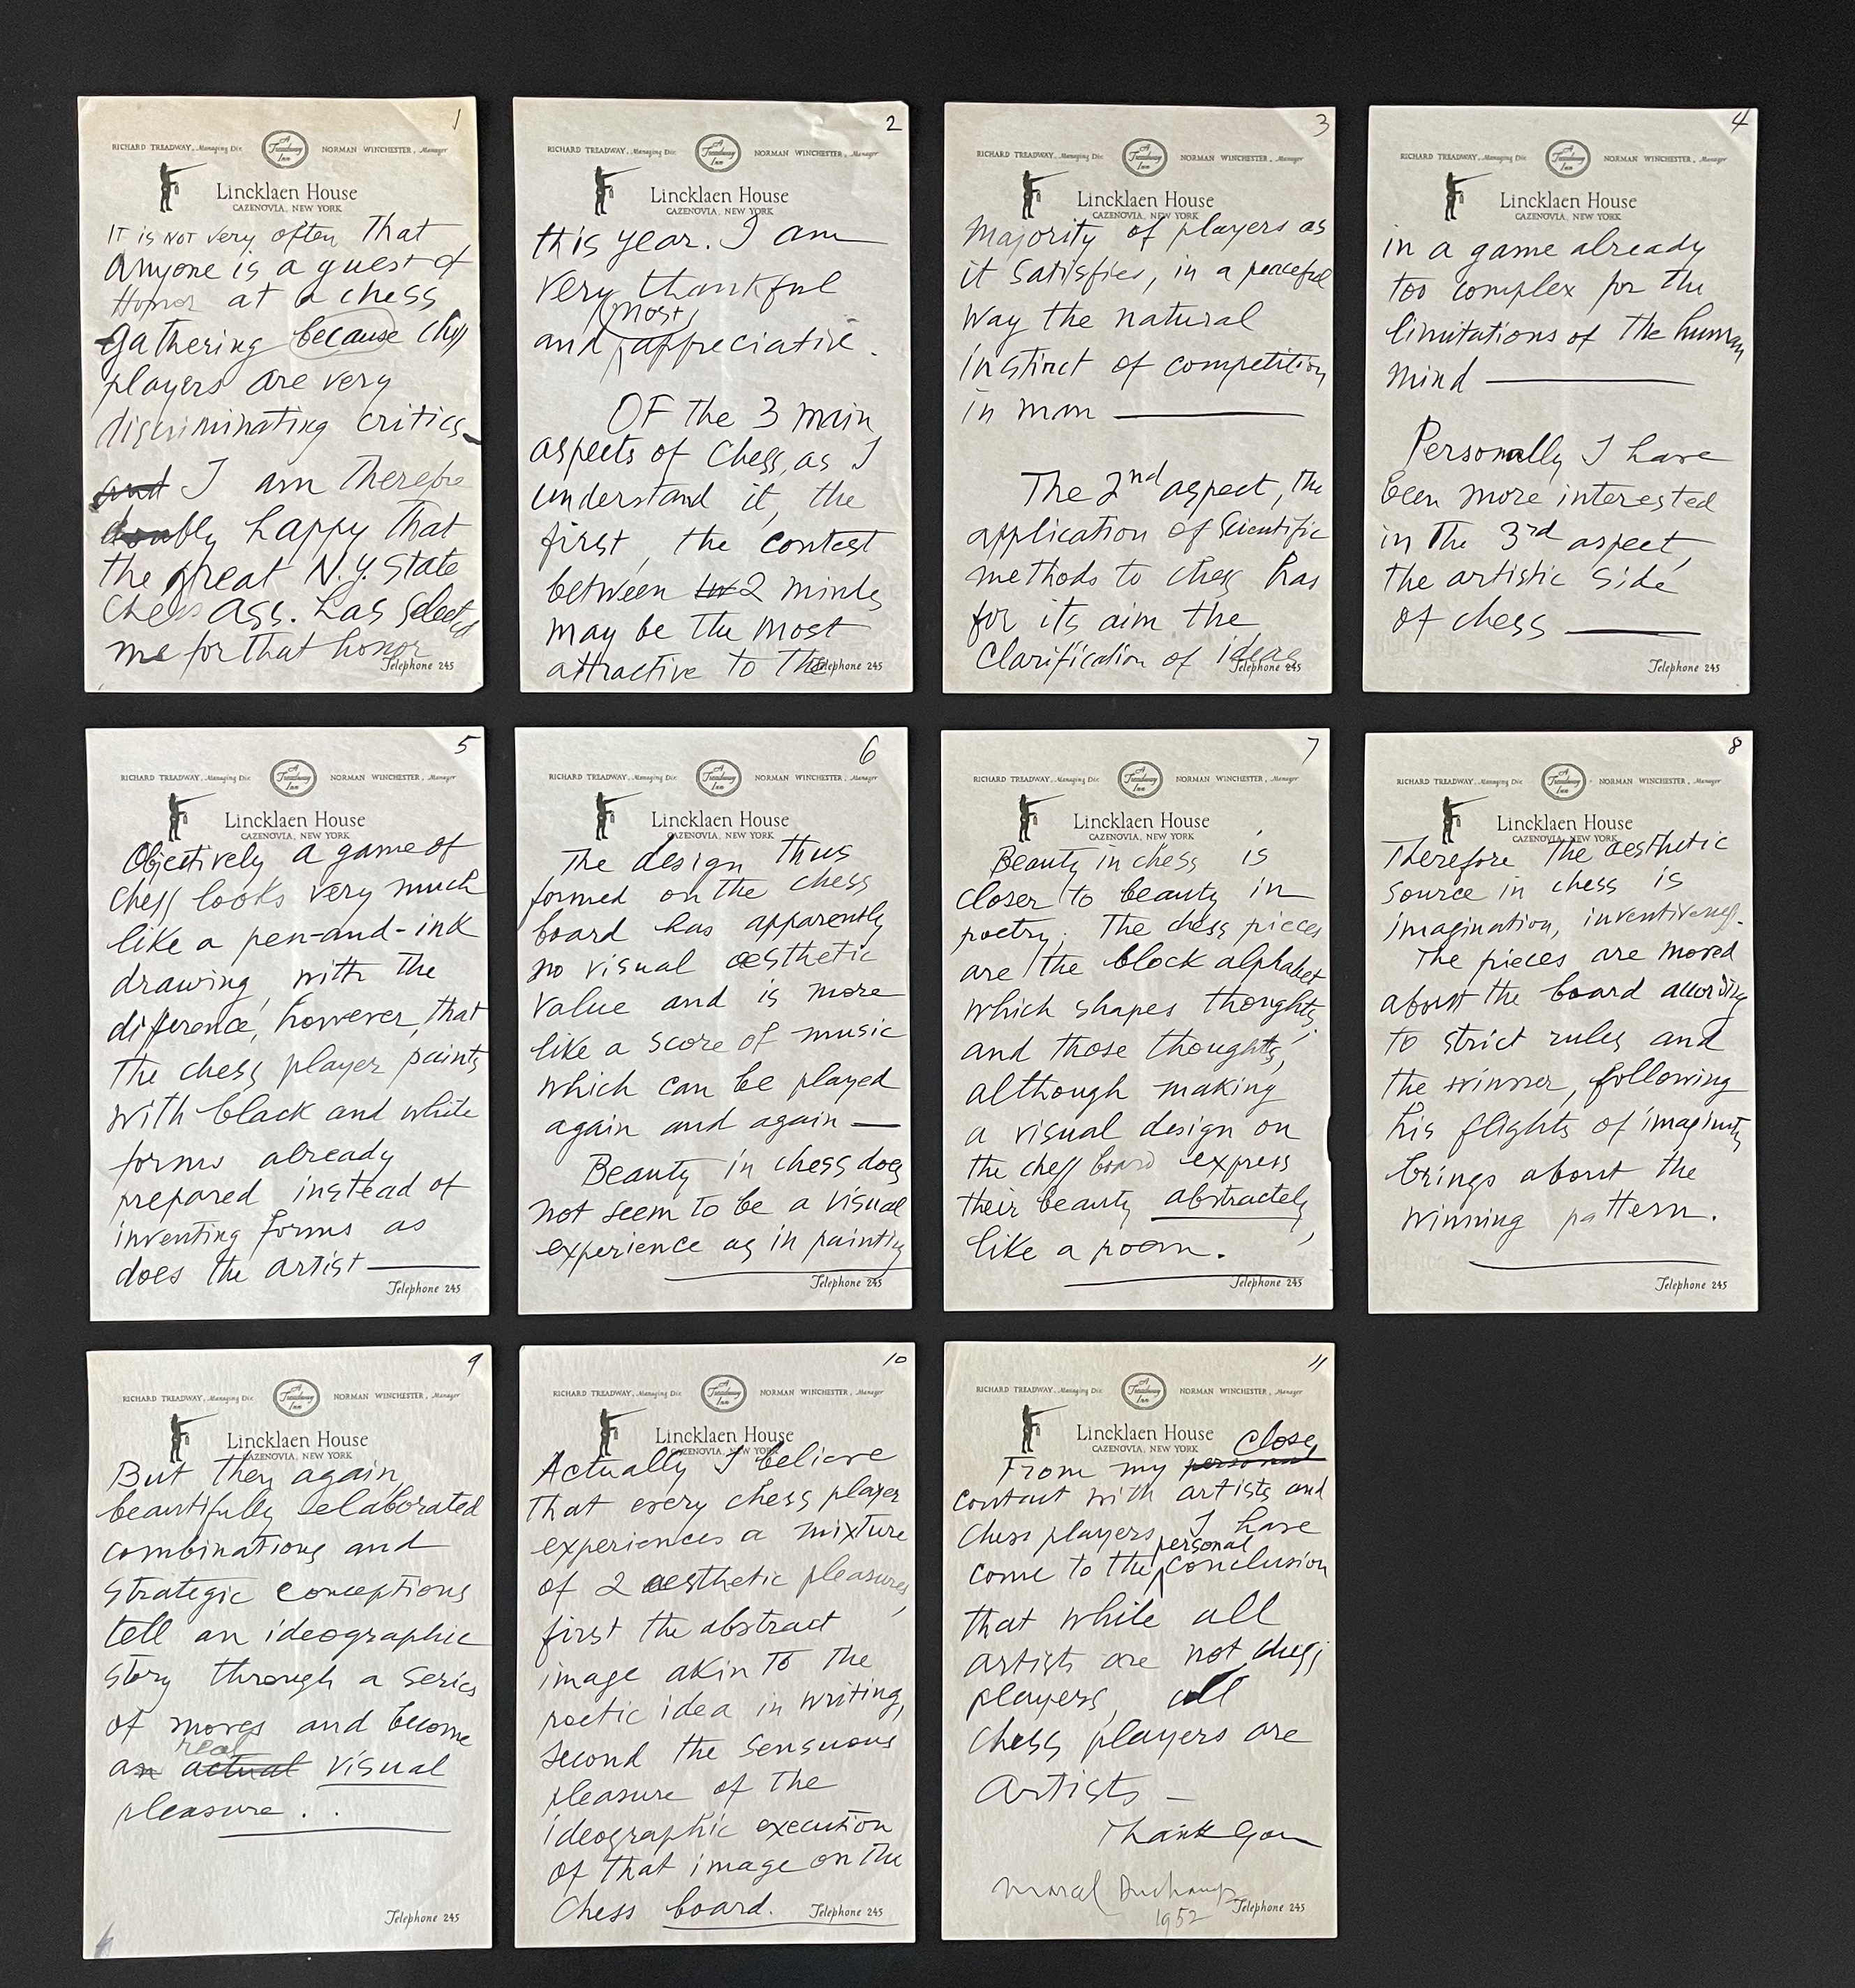 1
RICHARD TREADWAY, Managing Dir.
A Treadway Inn
NORMAN WINCHESTER, Manager
Lincklaen House
CAZENOVIA, NEW YORK
It is not very often that
anyone is a guest of
Honor at a chess
gathering because chess
players are very
discriminating critics
and I am therefore
doubly happy that
the great N.Y. State
Chess Ass. has selected
me for that honor
Telephone 245
2
RICHARD TREADWAY, Managing Dir.
A Treadway Inn
NORMAN WINCHESTER, Manager
Lincklaen House
CAZENOVIA, NEW YORK
this year. I am
very thankful
most
and appreciative.
OF the 3 main
aspects of Chess, as I
understand it, the
first, the contest
between 2 minds
may be the most
attractive to the
Telephone 245
3
RICHARD TREADWAY, Managing Dir.
A Treadway Inn
NORMAN WINCHESTER, Manager
Lincklaen House
CAZENOVIA, NEW YORK
Majority of players as
it satisfies, in a peaceful
way the natural
instinct of competition
in man
The 2nd aspect, the
application of Scientific
methods to chess has
for its aim the
Clarification of ideas
Telephone 245
4
RICHARD TREADWAY, Managing Dir.
A Treadway Inn
NORMAN WINCHESTER, Manager
Lincklaen House
CAZENOVIA, NEW YORK
in a game already
too complex for the
limitations of the human
mind
Personally I have
been more interested
in the 3rd aspect,
the artistic side
of chess
Telephone 245
5
RICHARD TREADWAY, Managing Dir.
A Treadway Inn
NORMAN WINCHESTER, Manager
Lincklaen House
CAZENOVIA, NEW YORK
Objectively a game of
chess looks very much
like a pen-and-ink
drawing, with the
difference, however, that
the chess player paints
with black and white
forms already
prepared instead of
inventing forms as
does the artist
Telephone 245
6
RICHARD TREADWAY, Managing Dir.
A Treadway Inn
NORMAN WINCHESTER, Manager
Lincklaen House
CAZENOVIA, NEW YORK
The design thus
formed on the chess
board has apparently
no visual aesthetic
value and is more
like a score of music
which can be played
again and again —
Beauty in chess does
not seem to be a visual
experience as in painting
Telephone 245
7
RICHARD TREADWAY, Managing Dir.
A Treadway Inn
NORMAN WINCHESTER, Manager
Lincklaen House
CAZENOVIA, NEW YORK
Beauty in chess is
closer to beauty in
poetry; The chess pieces
are the block alphabet
which shapes thoughts;
and those thoughts,
although making
a visual design on
the chess board express
their beauty abstractely,
like a poem.
Telephone 245
8
RICHARD TREADWAY, Managing Dir.
A Treadway Inn
NORMAN WINCHESTER, Manager
Lincklaen House
CAZENOVIA, NEW YORK
Therefore the aesthetic
source in chess is
imagination, inventiveness.
The pieces are moved
about the board according
to strict rules and
the winner, following
his flights of imaginity
brings about the
winning pattern.
Telephone 245
9
RICHARD TREADWAY, Managing Dir.
A Treadway Inn
NORMAN WINCHESTER, Manager
Lincklaen House
CAZENOVIA, NEW YORK
But then again,
beautifully elaborated
combinations and
strategic conceptions
tell an ideographic
story through a series
of moves and become
real
an actual visual
pleasure..
Telephone 245
10
RICHARD TREADWAY, Managing Dir.
A Treadway Inn
NORMAN WINCHESTER, Manager
Lincklaen House
CAZENOVIA, NEW YORK
Actually I believe
that every chess player
experiences a mixture
of 2 aesthetic pleasures,
first the abstract
image akin to the
poetic idea in writing,
second the sensuous
pleasure of the
ideographic execution
of that image on the
Chess board.
Telephone 245
11
RICHARD TREADWAY, Managing Dir.
A Treadway Inn
NORMAN WINCHESTER, Manager
Lincklaen House
CAZENOVIA, NEW YORK
close
From my personal
contact with artists and
Chess players, I have
personal
come to the conclusion
that while all
artists are not chess
players, all
chess players are
artists —
Thank you
Marcel Duchamp
1952
Telephone 245